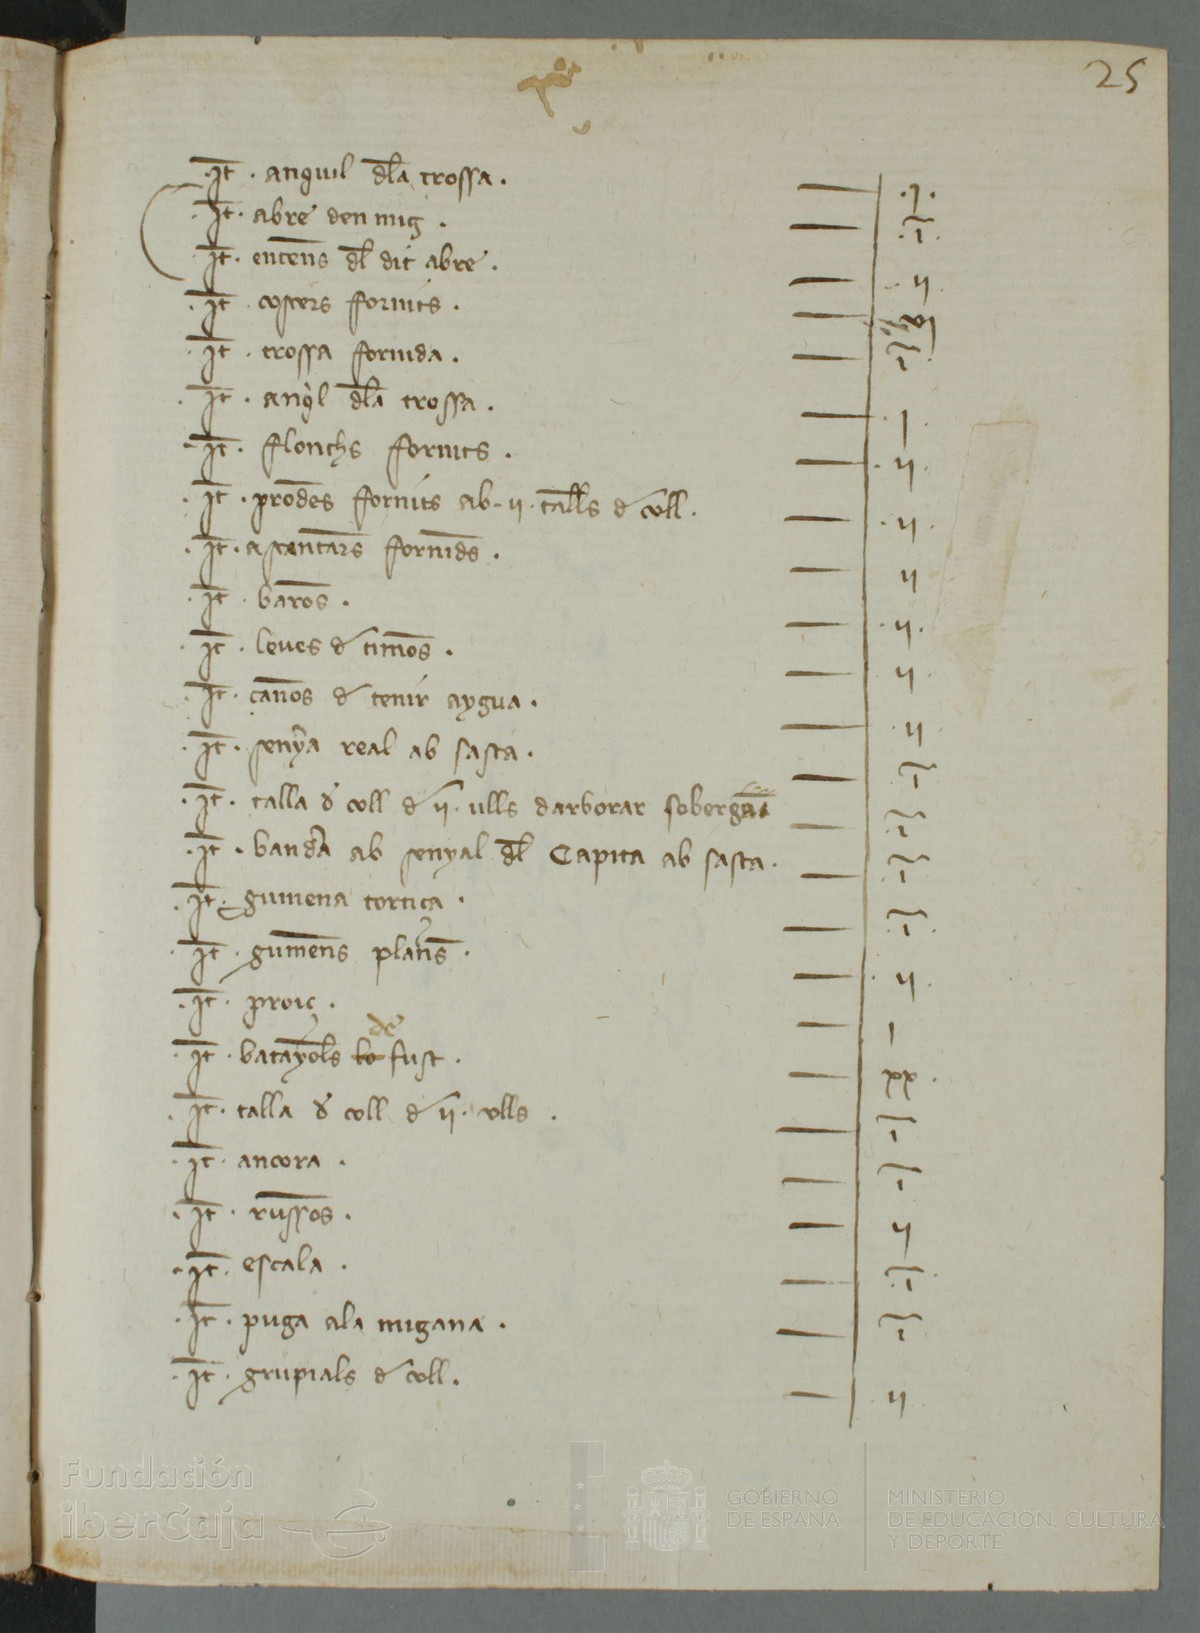 25
·It· anquil dla trossa· — ·I·
·It· abre den mig· — ·I·
·It· entens dl dit abre· — II
·It· costers fornits·
·It· trossa fornida· — I
·It· anql dla trossa· — I
·It· flonchs fornits· — ·II·
·It· prodes fornits ab·II·talls d coll· — ·II·
·It· ascentars fornids· — II
·It· baros· — ·II·
·It· leves d timos· — ·II·
·It· canos d tenir aygua· — ·II·
·It· senya real ab sasta· — I
·It· talla d coll d II· ulls darborar sobergan — I
·It· bandra ab senyal dl Capita ab sasta· — I
·It· gumena tortiça· — I
·It· gumens planes· — ·II·
·It· proiç· — I
·It· batayols de fust· — xx·
·It· talla d coll d II· ulls· — I
·It· ancora· — I
·It· russos· — II
·It· escala· — I
·It· puga ala migana· — I
·It· grupials d coll· — II
Fundación
iberCaja
GOBIERNO
DE ESPAÑA
MINISTERIO
DE EDUCACIÓN, CULTURA
Y DEPORTE